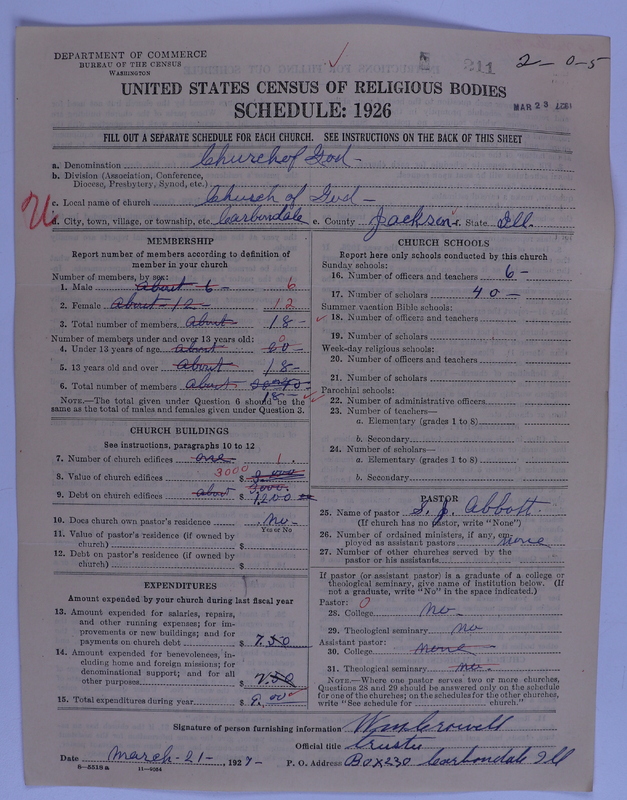 DEPARTMENT OF COMMERCE
BUREAU OF THE CENSUS
WASHINGTON
211
2-0-5
UNITED STATES CENSUS OF RELIGIOUS BODIES
MAR 23 1927
SCHEDULE: 1926
FILL OUT A SEPARATE SCHEDULE FOR EACH CHURCH. SEE INSTRUCTIONS ON THE BACK OF THIS SHEET
a. Denomination Church of God
b. Division (Association, Conference,
Diocese, Presbytery, Synod, etc.)
c. Local name of church Church of God
d. City, town, village, or township, etc. Carbondale e. County Jackson f. State Ill.
MEMBERSHIP
Report number of members according to definition of
member in your church
Number of members, by sex:
1. Male About 6 - 6
2. Female About-12- 12
3. Total number of members About 18-
Number of members under and over 13 years old:
4. Under 13 years of age about 0
5. 13 years old and over About 18-
6. Total number of members About
18-
NOTE.—The total given under Question 6 should be the
same as the total of males and females given under Question 3.
CHURCH BUILDINGS
See instructions, paragraphs 10 to 12
7. Number of church edifices one 1
3000
8. Value of church edifices $
9. Debt on church edifices $ 1,200
10. Does church own pastor's residence no
Yes or No
11. Value of pastor's residence (if owned by
church) $
12. Debt on pastor's residence (if owned by
church) $
EXPENDITURES
Amount expended by your church during last fiscal year
13. Amount expended for salaries, repairs,
and other running expenses; for im-
provements or new buildings; and for
payments on church debt $ 7.50
14. Amount expended for benevolences, in-
cluding home and foreign missions; for
denominational support; and for all
other purposes $
15. Total expenditures during year $ 9.00
CHURCH SCHOOLS
Report here only schools conducted by this church
Sunday schools:
16. Number of officers and teachers 6-
17. Number of scholars 40-
Summer vacation Bible schools:
18. Number of officers and teachers
19. Number of scholars
Week-day religious schools:
20. Number of officers and teachers
21. Number of scholars
Parochial schools:
22. Number of administrative officers
23. Number of teachers—
a. Elementary (grades 1 to 8)
b. Secondary
24. Number of scholars—
a. Elementary (grades 1 to 8)
b. Secondary
PASTOR
25. Name of pastor S. J. Abbott.
(If church has no pastor, write "None")
26. Number of ordained ministers, if any, em-
ployed as assistant pastors none
27. Number of other churches served by the
pastor or his assistants
If pastor (or assistant pastor) is a graduate of a college or
theological seminary, give name of institution below. (If
not a graduate, write "No" in the space indicated.)
Pastor: 0
28. College no
29. Theological seminary no
Assistant pastor:
30. College none
31. Theological seminary no.
NOTE.—Where one pastor serves two or more churches,
Questions 28 and 29 should be answered only on the schedule
for one of the churches; on the schedules for the other churches,
write "See schedule for church."
Signature of person furnishing information Wm Crowell
Official title trustee
Date March-21-, 1927- P. O. Address Box 230 Carbondale Ill
8-5518a 11-9084